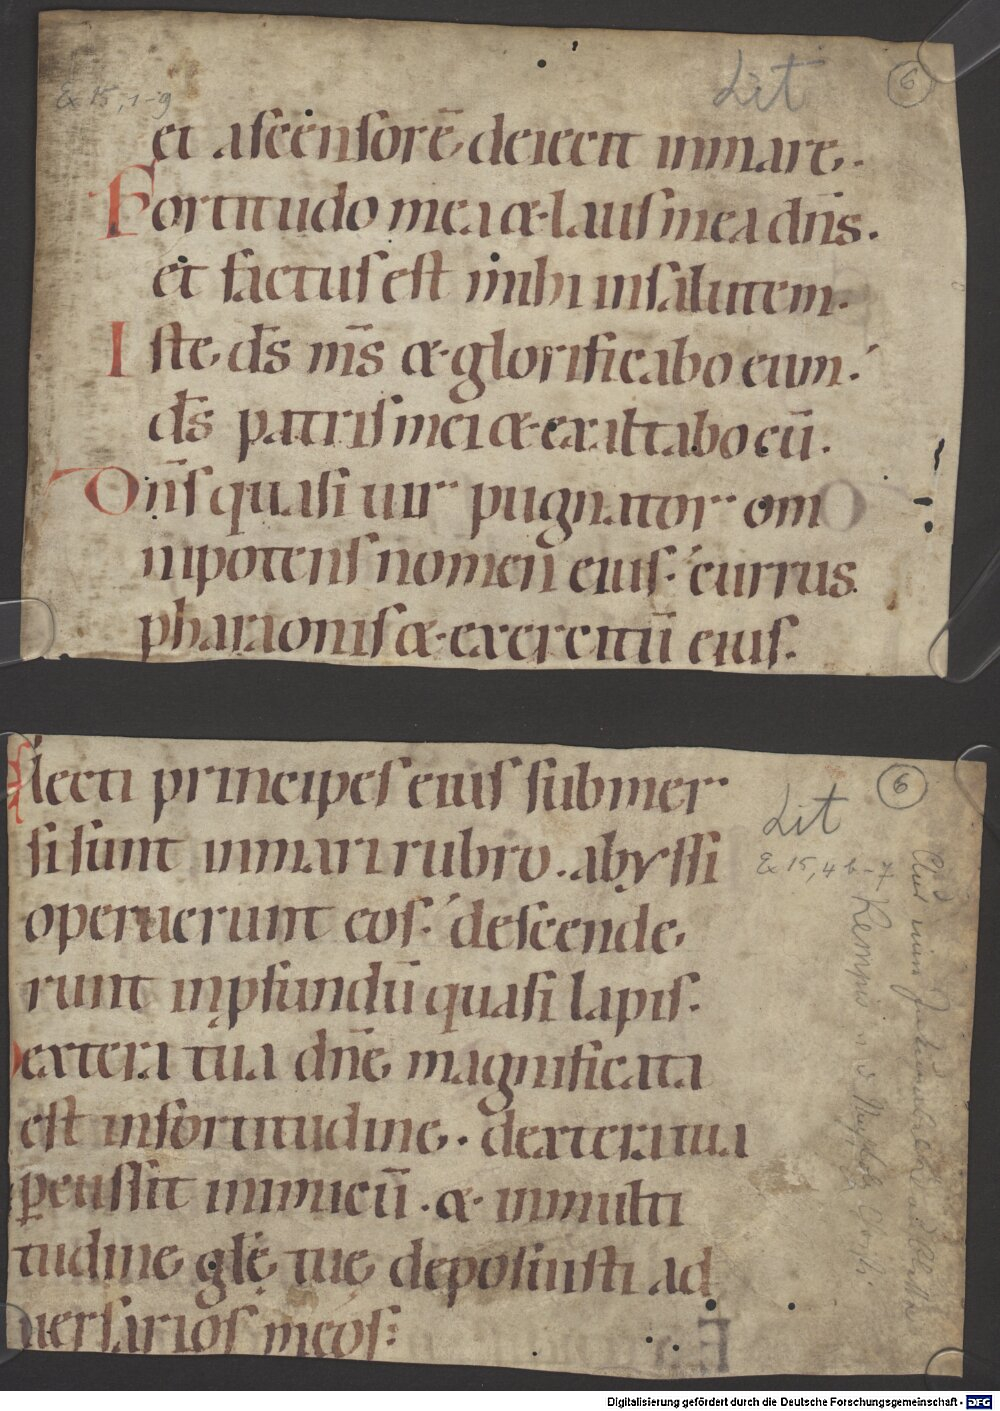 Ex 15, 1-9
Lit
6
et ascensorē deiecit inmare.
Fortitudo mea & laus mea dn̄s.
et factus est mihi insalutem.
Iste ds̄ ms̄ & glorificabo eum:
ds̄ patris mei & exaltabo eū.
Dn̄s quasi uir pugnator om
nipotens nomen eius. currus
pharaonis & exercitū eius.
Electi principes eius submer
si sunt inmari rubro. abyssi
operuerunt eos. descende
runt inp̱fundū quasi lapis.
Dextera tua dn̄e magnificata
est infortitudine. dextera tua
p̱cussit inimicū. & inmulti
tudine glē tuę deposuisti ad
uersarios meos:
Lit
6
Ex 15, 4b-7
Kempis
Digitalisierung gefördert durch die Deutsche Forschungsgemeinschaft - DFG